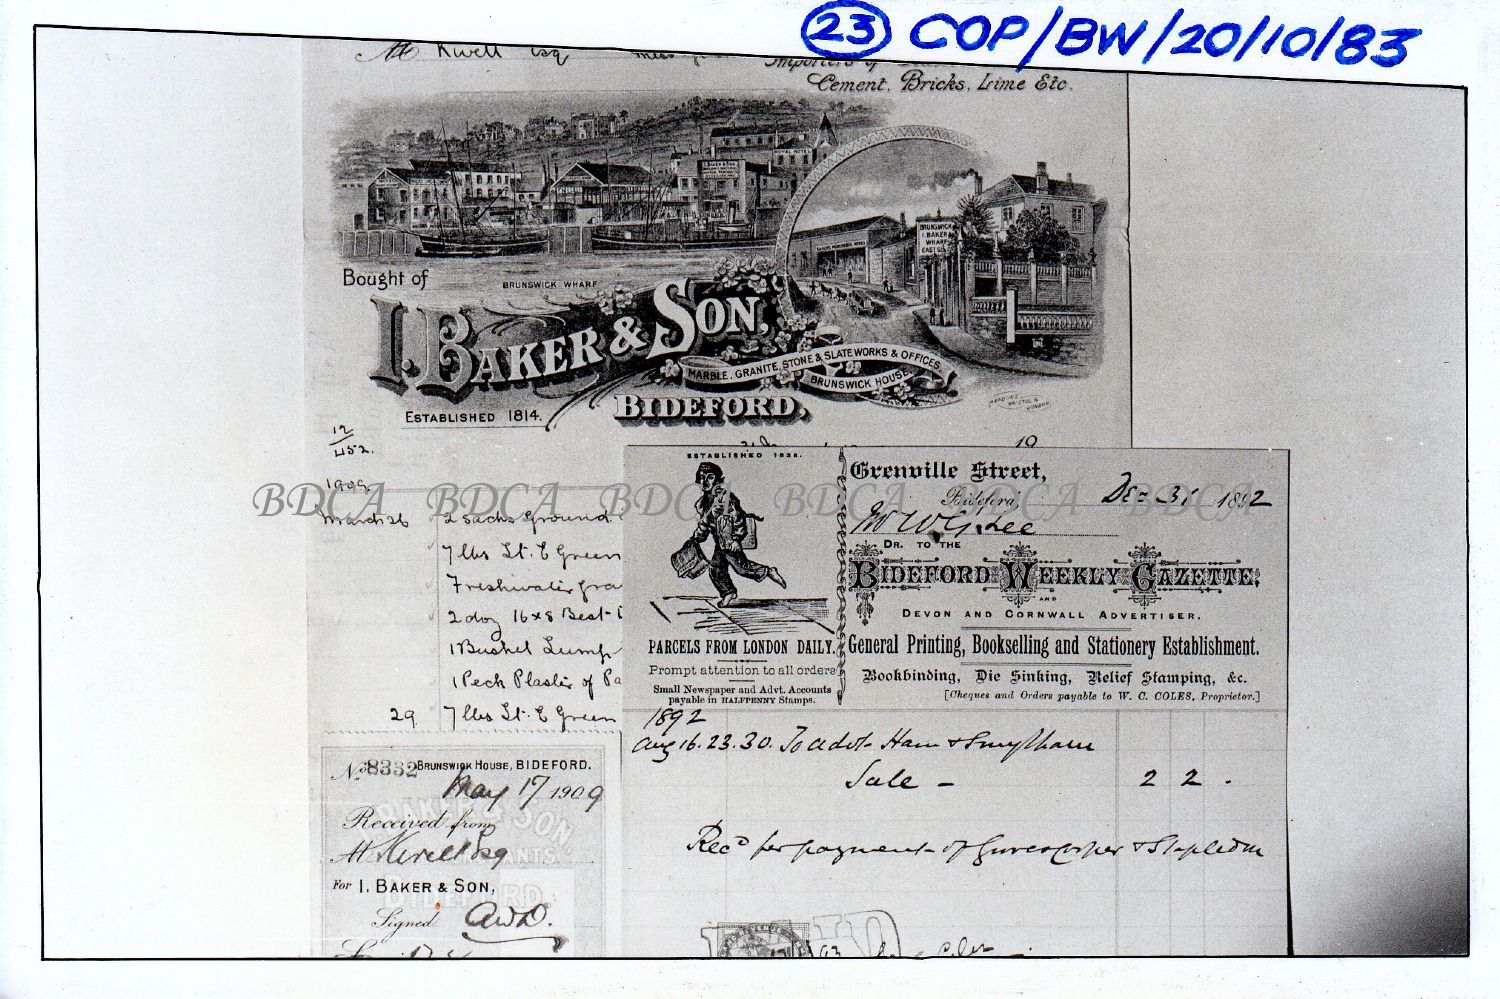 23 COP/BW/20/10/83
Esq
Importers of
Cement, Bricks, Lime Etc.
ROYAL HOTEL
I. BAKER & SON
BRUNSWICK
I. BAKER
WHARF
Bought of
BRUNSWICK WHARF
I. BAKER & SON,
MARBLE, GRANITE, STONE & SLATE WORKS & OFFICES,
BRUNSWICK HOUSE
BIDEFORD,
ESTABLISHED 1814.
12/452.
19
1909
BDCA BDCA BDCA BDCA BDCA BDCA
March 26 2 sacks Ground
7 lbs Lt. E Green
Freshwater gra
2 doz 16x8 Best
1 Bushel Lump
1 Peck Plaster of Pa
29 7 lbs Lt. E Green
No. 8332 BRUNSWICK HOUSE, BIDEFORD.
May 17 1909
Received from
Esq
For I. BAKER & SON,
Signed
ESTABLISHED
PARCELS FROM LONDON DAILY.
Prompt attention to all orders
Small Newspaper and Advt. Accounts
payable in HALFPENNY Stamps.
Grenville Street,
Bideford, Dec 31 1892
DR. TO THE
BIDEFORD WEEKLY GAZETTE,
AND
DEVON AND CORNWALL ADVERTISER.
General Printing, Bookselling and Stationery Establishment.
Bookbinding, Die Sinking, Relief Stamping, &c.
[Cheques and Orders payable to W. C. COLES, Proprietor.]
1892
Aug 16. 23. 30. To advt Ham & Smytham
Sale - 2 2 .
Recd for payment of & Stapledon